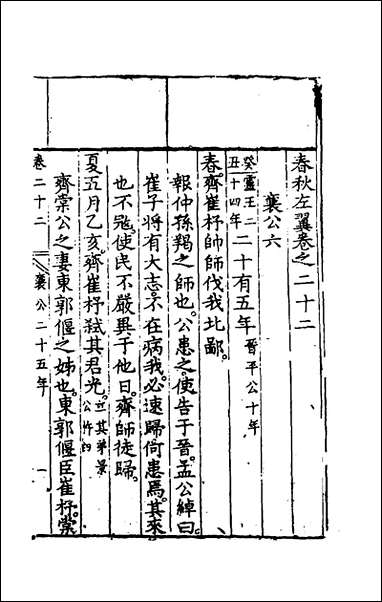 春秋左翼卷之二十二
襄公六
癸丑靈王二十四年二十有五年晉平公十年
春齊崔杼帥師伐我北鄙
報仲孫羯之師也公患之使告于晉孟公綽曰
崔子將有大志不在病我必速歸何患焉其來
也不寇使民不嚴異于他日齊師徒歸
夏五月乙亥齊崔杼弒其君光立其弟景公杵臼
齊棠公之妻東郭偃之姊也東郭偃臣崔杼棠
卷二十二 襄公二十五年 一